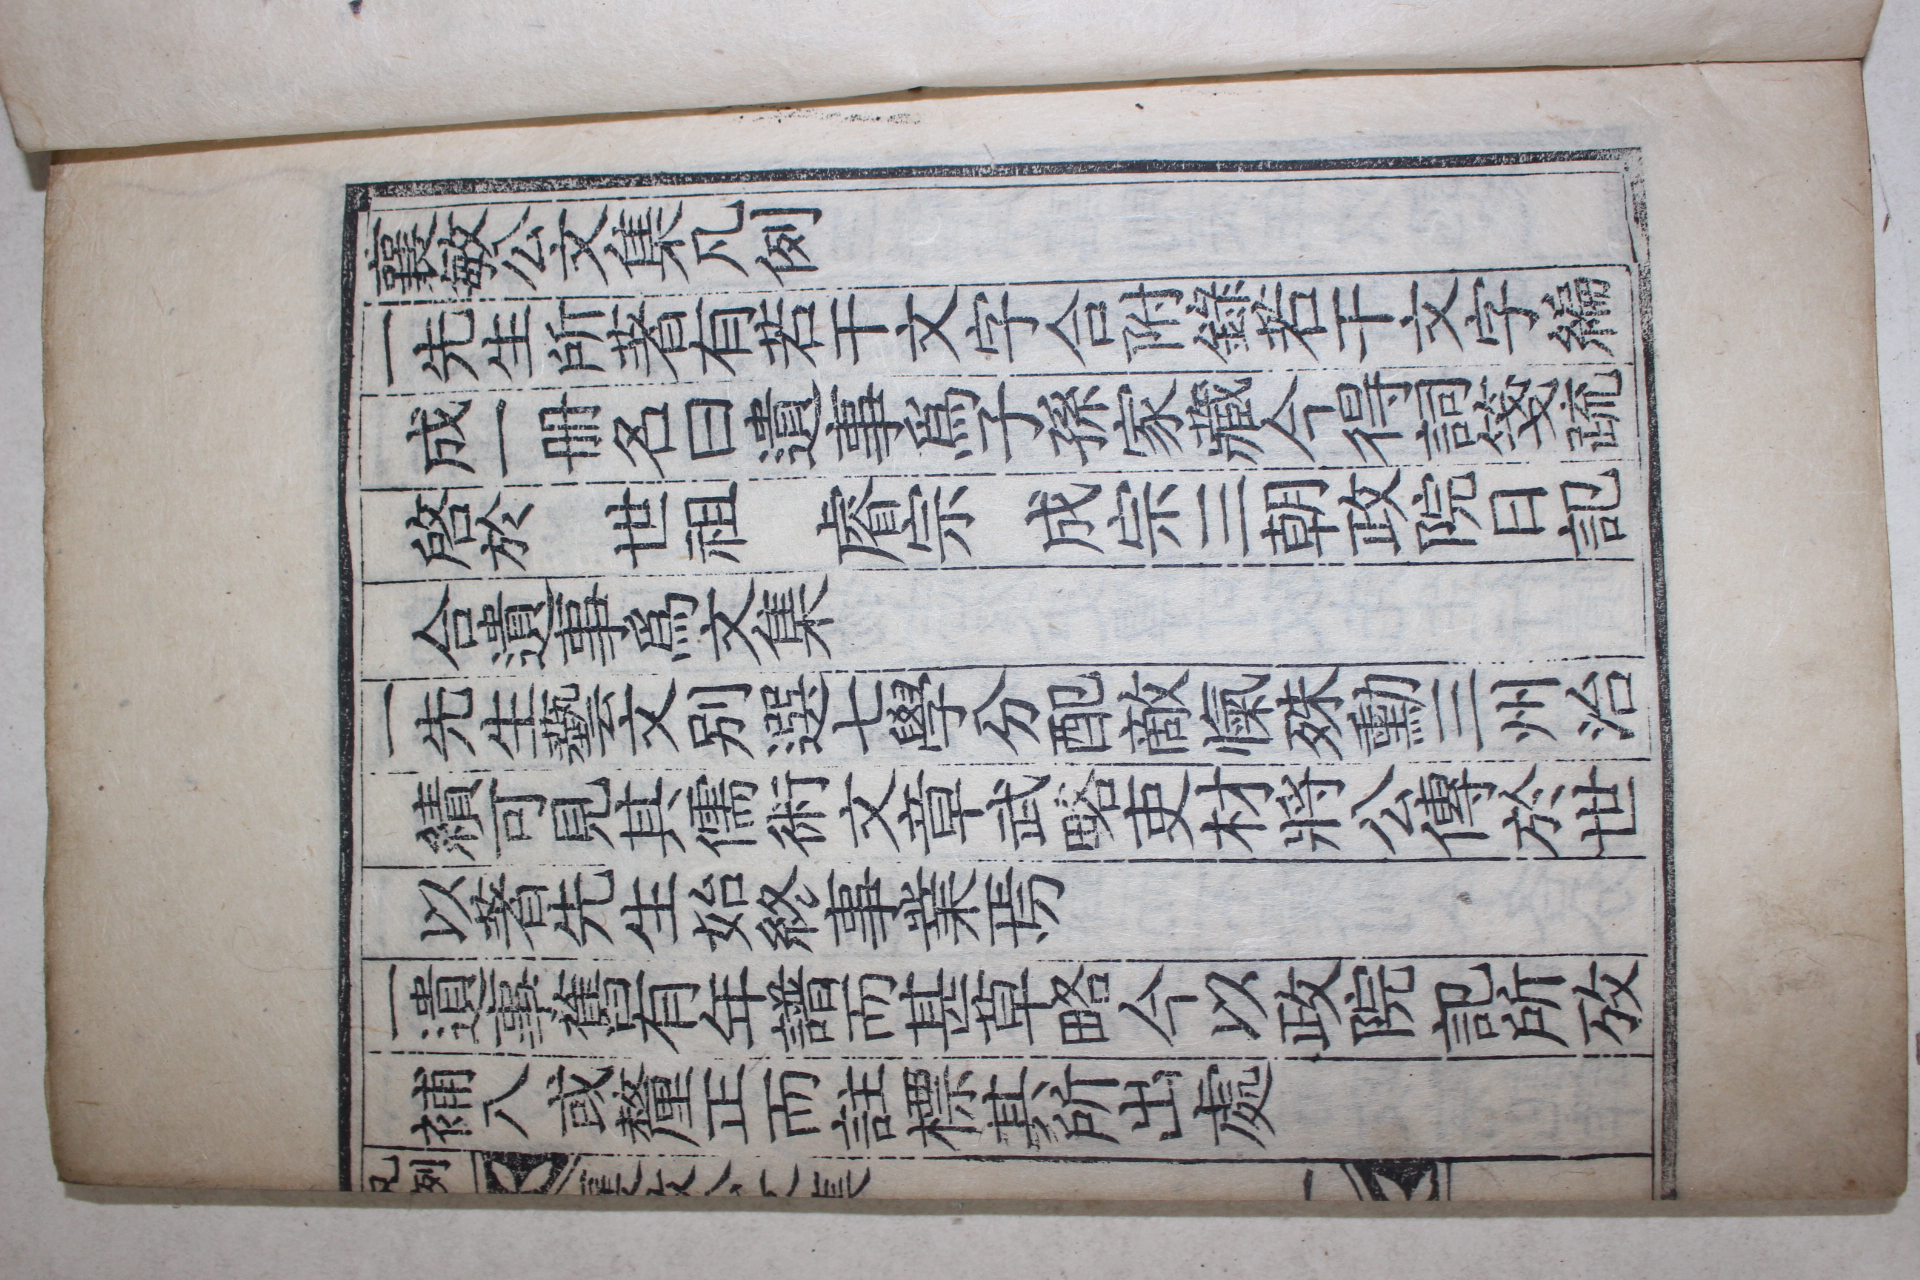 襄敏公文集凡例
一先生所著有若干文字合附錄若干文字編
成一冊名曰遺事爲子孫家藏今得詞箋疏
啓於 世祖 睿宗 成宗三朝政院日記
合遺事爲文集
一先生藝文別選七學分配敵愾殊勳三州治
績可見其儒術文章武略吏材將公傳於世
以著先生始終事業焉
一遺事舊有年譜而甚草略今以政院記所攷
補入或釐正而註標其所出處
凡例 襄敏公文集 一